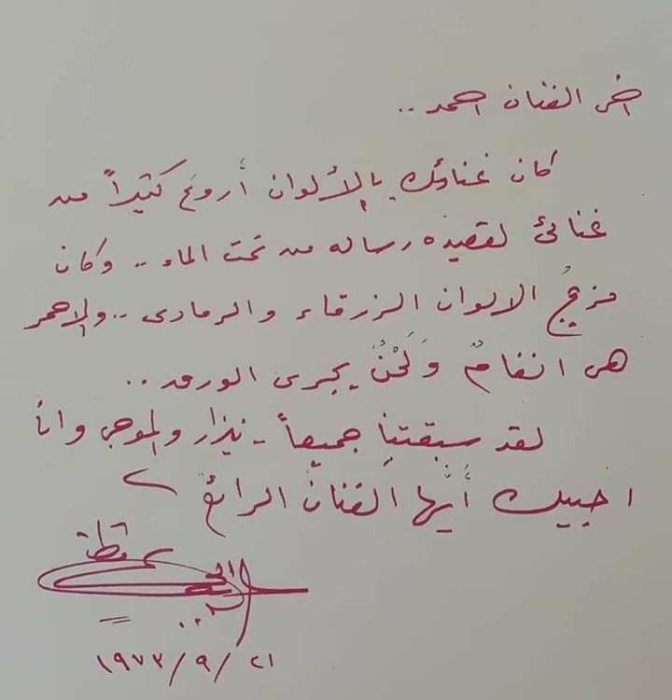 اخى الفنان احمد ..
كان غناؤك بالألوان أروع كثيراً من
غنائى لقصيده رساله من تحت الماء .. وكان
مزيجُ الالوان الزرقاء والرمادى .. والاحمر
هى انغامٌ ولَحْنٌ يجرى الورق ..
لقد سبقتنا جميعاً - نزار والموجى وانا
احييك أيُّها الفنان الرائع
٢١ / ٩ / ١٩٧٣